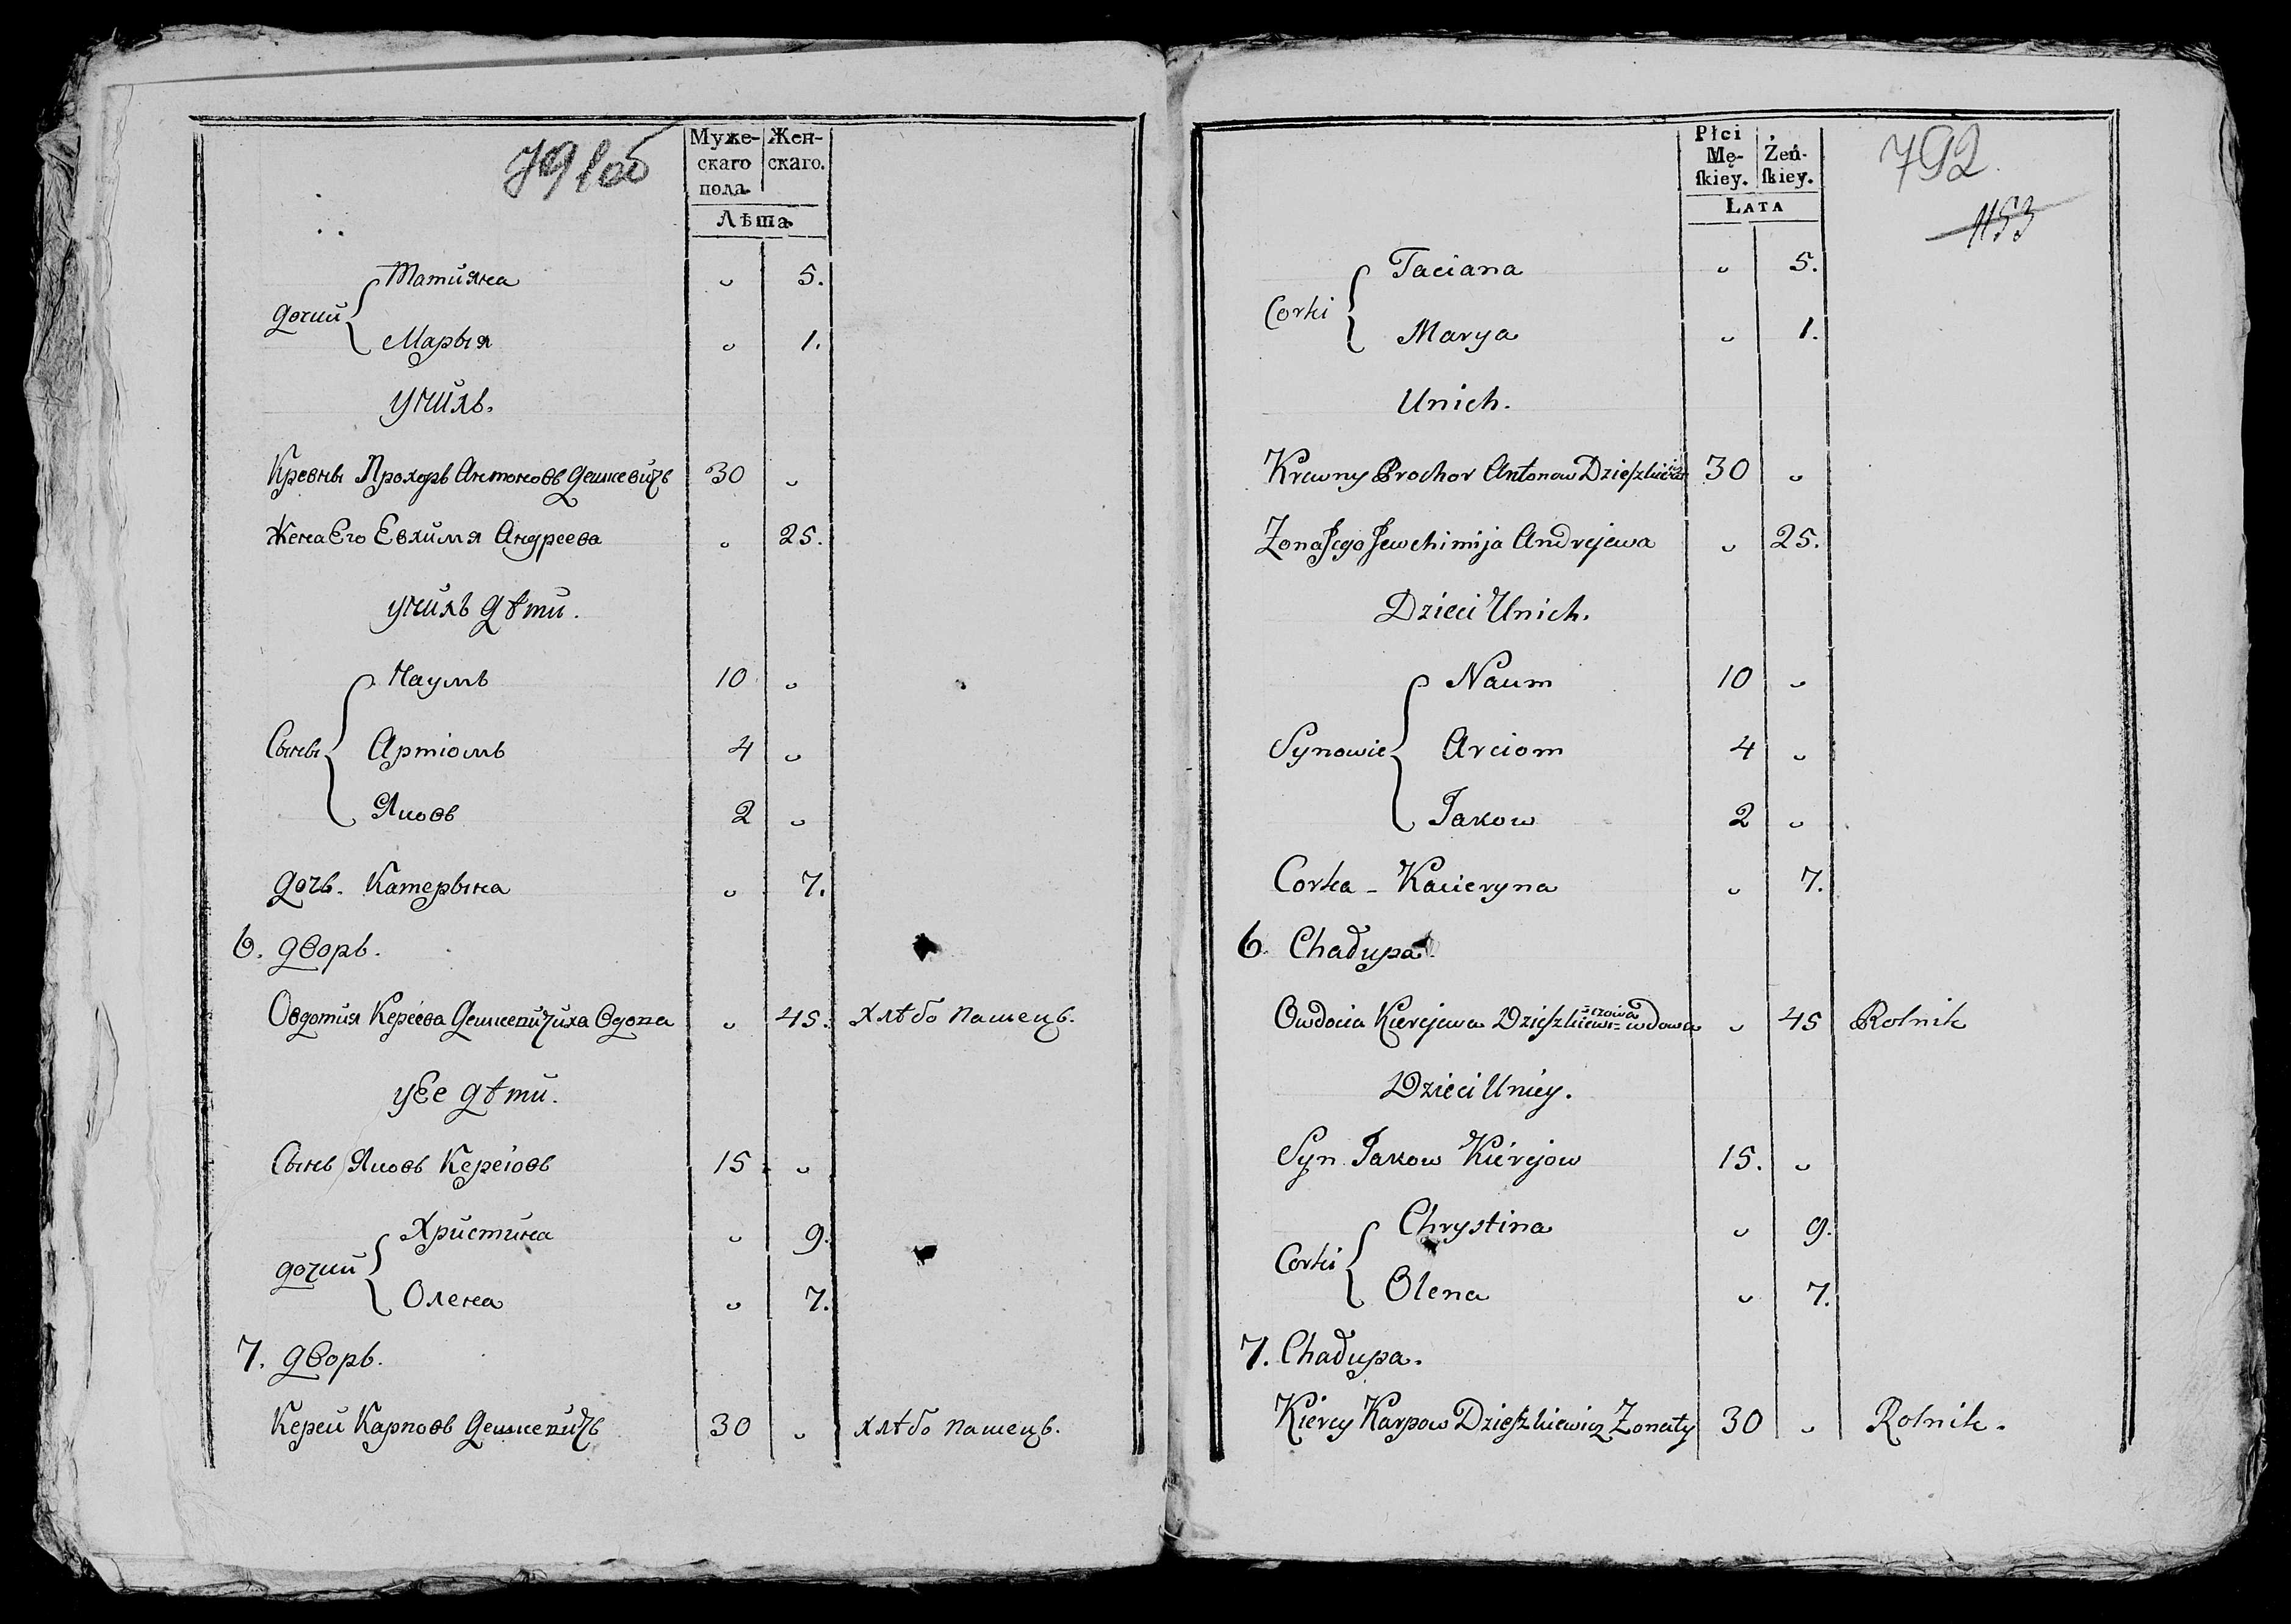 791об
Муже-
скаго
пола.
Жен-
скаго.
Лѣта.
Татияна „ 5.
дочки
Марыя „ 1.
уних.
Кревны Прохоръ Антоновъ Дешкевичъ 30 „
Жена Его Евхимя Андреева „ 25.
унихъ дѣти.
Наумъ 10 „
Сыны Артіомъ 4 „
Яковъ 2 „
дочь. Катерына „ 7.
6. дворъ.
Овдотия Кереева Дешкевичиха Вдова „ 45. хлѣбо пашецъ.
уЕе дѣти.
Сынъ Яковъ Керeіовъ 15 „
Христина „ 9.
дочки
Олена „ 7.
7. дворъ.
Керей Карповъ Дешкевичъ 30 „ хлѣбо пашецъ.
Płci
Mę-
ſkiey.
Żeń-
ſkiey.
LATA
792
1153
Taciana „ 5.
Corki
Marya „ 1.
Unich.
Krewny Prochor Antonow Dzieszkiewicz 30 „
Zona Jego Jewchimija Andrejewa „ 25.
Dzieci Unich.
Naum 10 „
Synowie Arciom 4 „
Jakow 2 „
Corka - Kacieryna „ 7.
6. Chadupa.
Owdocia Kierejewa Dzieszkiewi=czowa wdowa „ 45 Rolnik
Dzieci Uniey.
Syn Jakow Kierejow 15. „
Chrystina „ 9.
Corki
Olena „ 7.
7. Chadupa.
Kierey Karpow Dzieszkiewicz Zonaty 30 „ Rolnik.